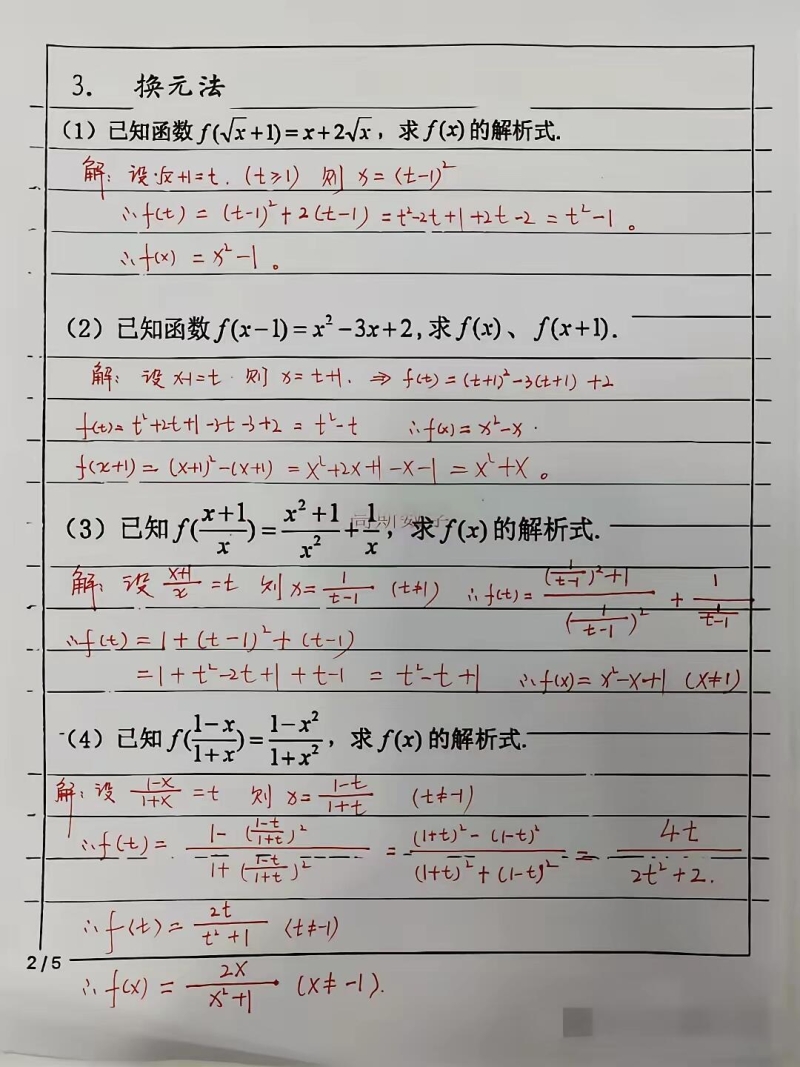 3. 换元法
(1)已知函数f(√x+1)=x+2√x,求f(x)的解析式.
解:设√x+1=t.(t≥1) 则x=(t-1)²
∴f(t)=(t-1)²+2(t-1)=t²-2t+1+2t-2=t²-1。
∴f(x)=x²-1。
(2)已知函数f(x-1)=x²-3x+2,求f(x)、f(x+1).
解:设x-1=t.则x=t+1.⇒f(t)=(t+1)²-3(t+1)+2
f(t)=t²+2t+1-3t-3+2=t²-t ∴f(x)=x²-x.
f(x+1)=(x+1)²-(x+1)=x²+2x+1-x-1=x²+x。
(3)已知f((x+1)/x)=(x²+1)/x²+1/x,求f(x)的解析式.
解:设(x+1)/x=t 则x=1/(t-1) (t≠1) ∴f(t)=((1/(t-1))²+1)/(1/(t-1))²+1/(1/(t-1))
∴f(t)=1+(t-1)²+(t-1)
=1+t²-2t+1+t-1=t²-t+1 ∴f(x)=x²-x+1 (x≠1)
(4)已知f((1-x)/(1+x))=(1-x²)/(1+x²),求f(x)的解析式.
解:设(1-x)/(1+x)=t 则x=(1-t)/(1+t) (t≠-1)
∴f(t)=(1-((1-t)/(1+t))²)/(1+((1-t)/(1+t))²)=((1+t)²-(1-t)²)/((1+t)²+(1-t)²)=4t/(2t²+2).
∴f(t)=2t/(t²+1) (t≠-1)
2/5
∴f(x)=2x/(x²+1) (x≠-1).